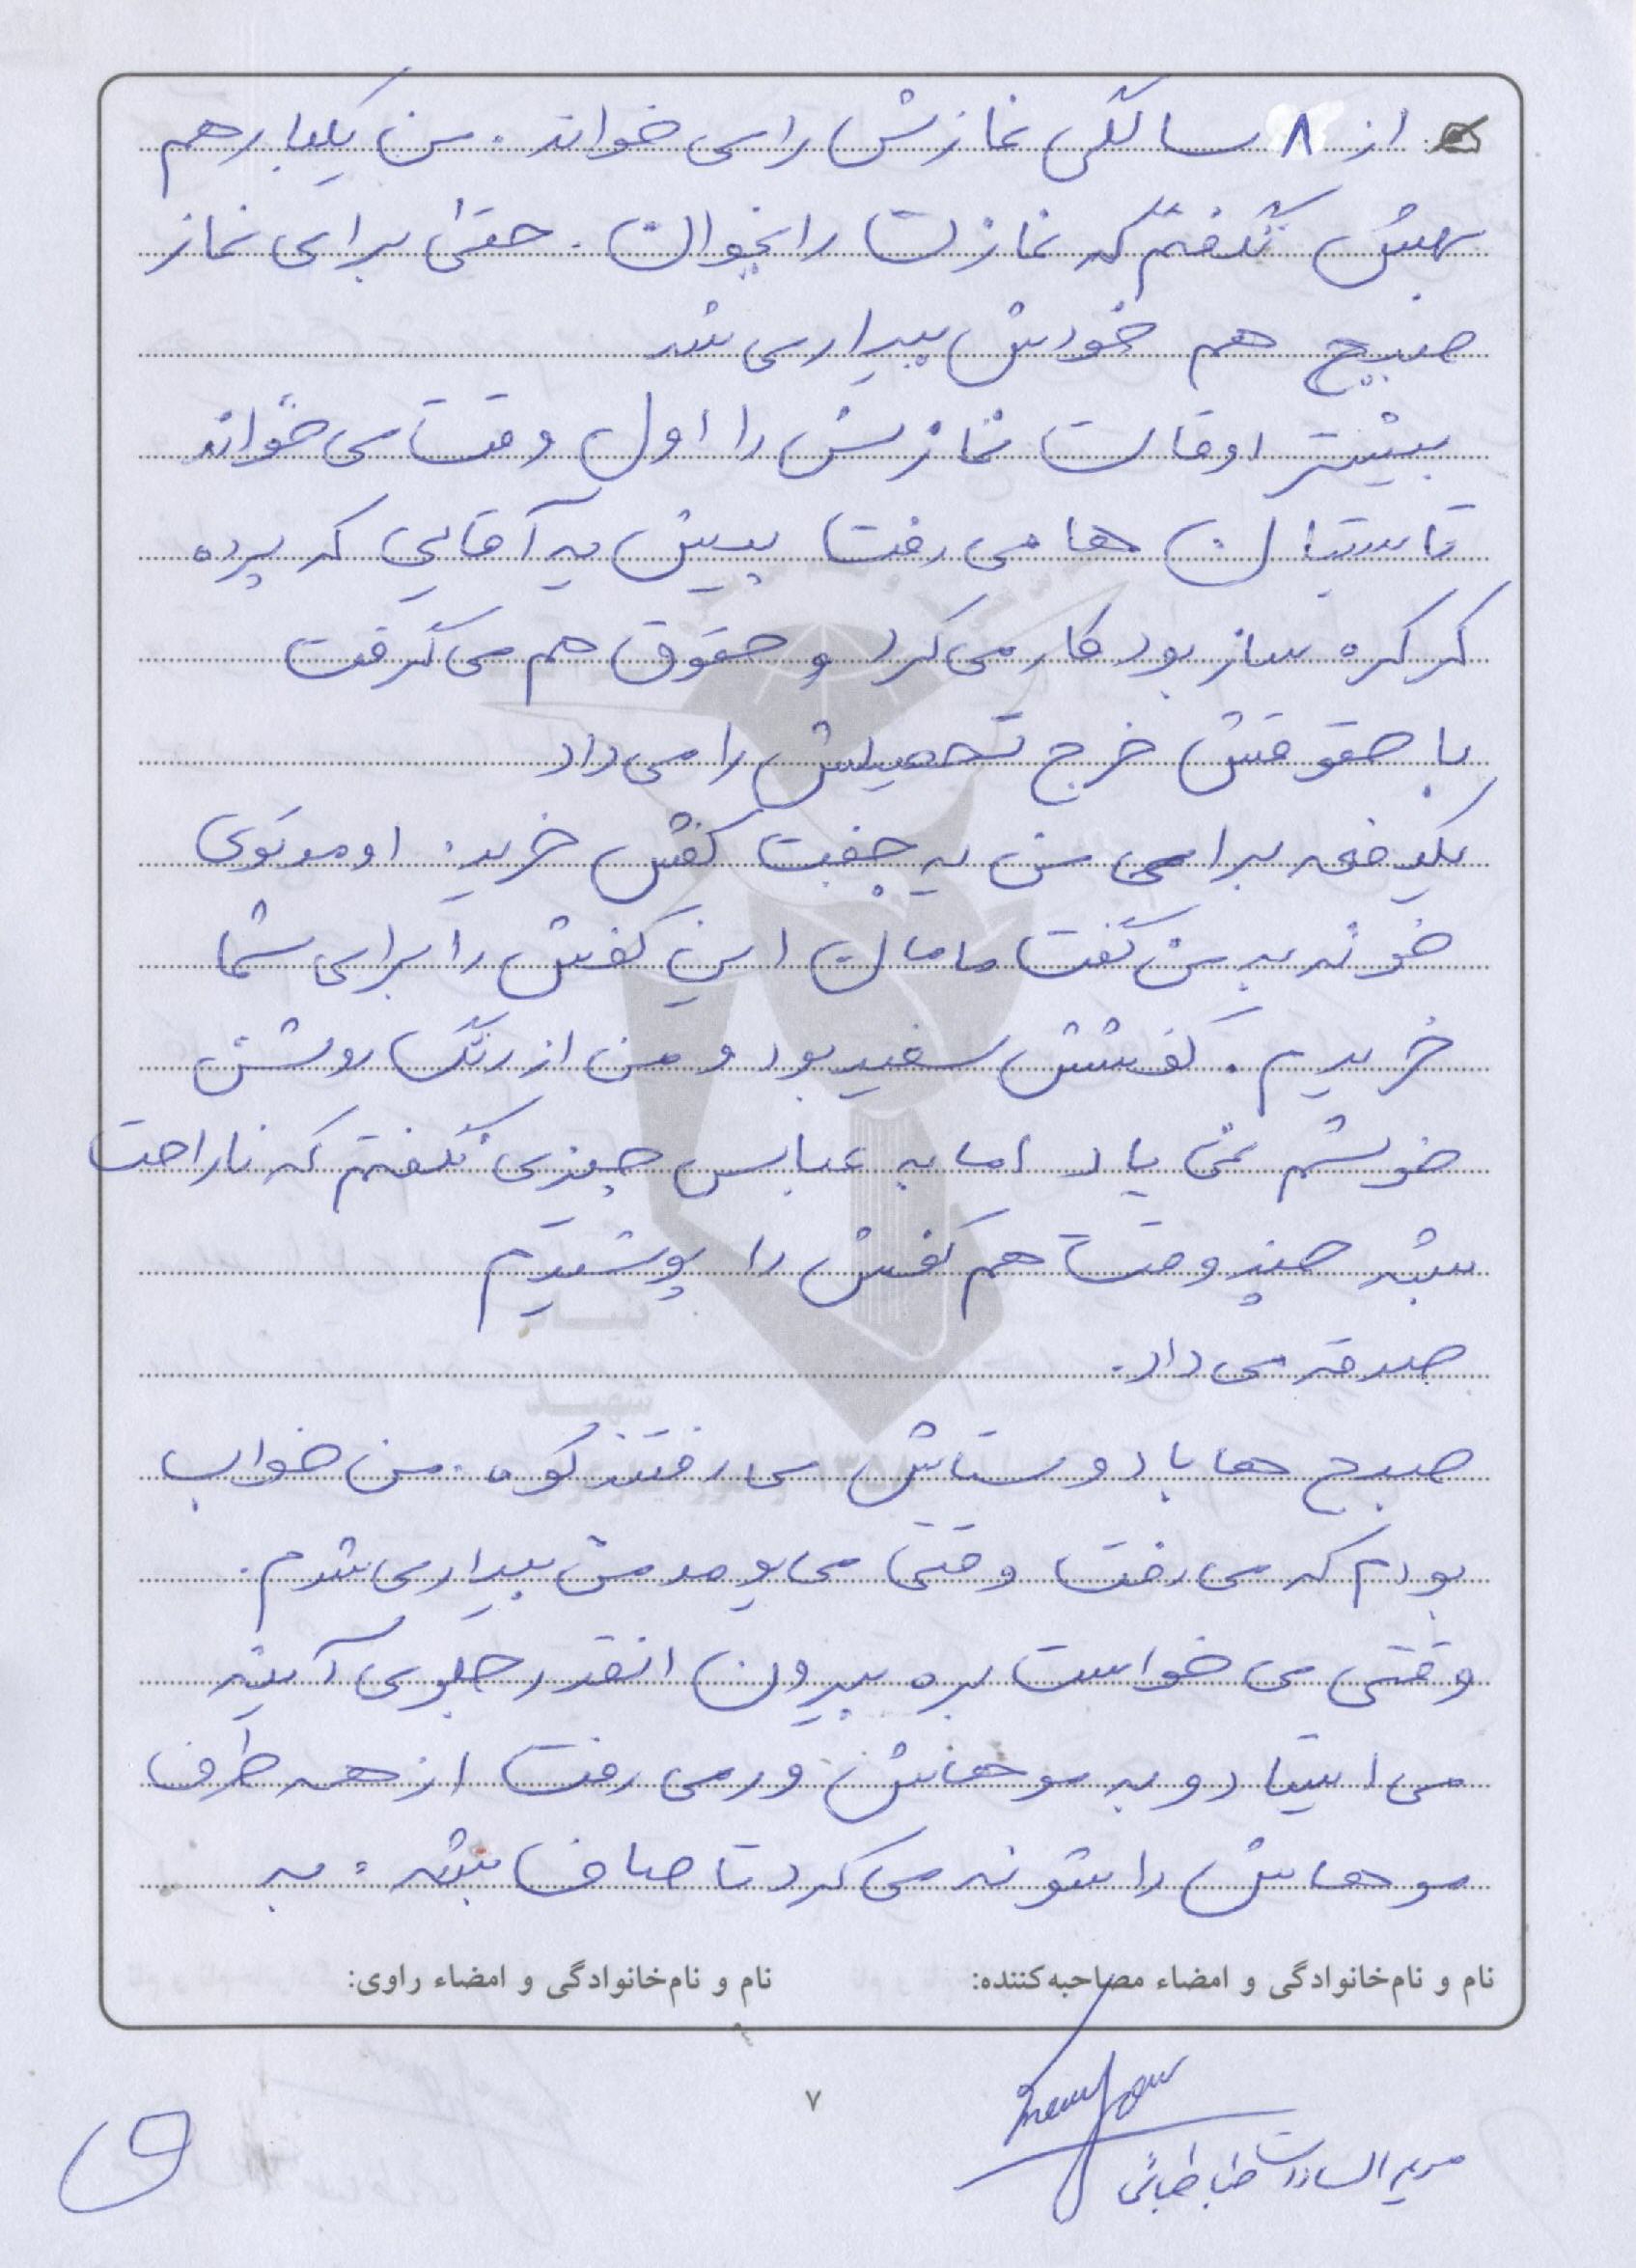 از ۸ سالگی نمازش را می خواند. من یکبار هم
بهش نگفتم که نمازت را بخوان. حتی برای نماز
صبح هم خودش بیدار می شد
بیشتر اوقات نمازش را اول وقت می خواند
تابستان ها می رفت پیش یه آقایی که پرده
کرکره ساز بود کار می کرد و حقوق هم می گرفت
با حقوقش خرج تحصیلش را می داد
یکدفعه برای من یه جفت کفش خرید. اومد توی
خونه به من گفت مامان این کفش را برای شما
خریدم. کفشش سفید بود و من از رنگ روشن
خوشم نمی یاد اما به عباس چیزی نگفتم که ناراحت
بشه چند وقت هم کفش را پوشیدم
صدقه می داد.
صبح ها با دوستاش می رفتند کوه. من خواب
بودم که می رفت وقتی می یومد من بیدار می شدم.
وقتی می خواست بره بیرون انقدر جلوی آینه
می ایستاد و به موهاش ور می رفت از همه طرف
موهاش را شونه می کرد تا صاف بشه. به
نام و نام‌خانوادگی و امضاء مصاحبه‌کننده:
نام و نام‌خانوادگی و امضاء راوی:
۷
مریم السادات طباطبائی